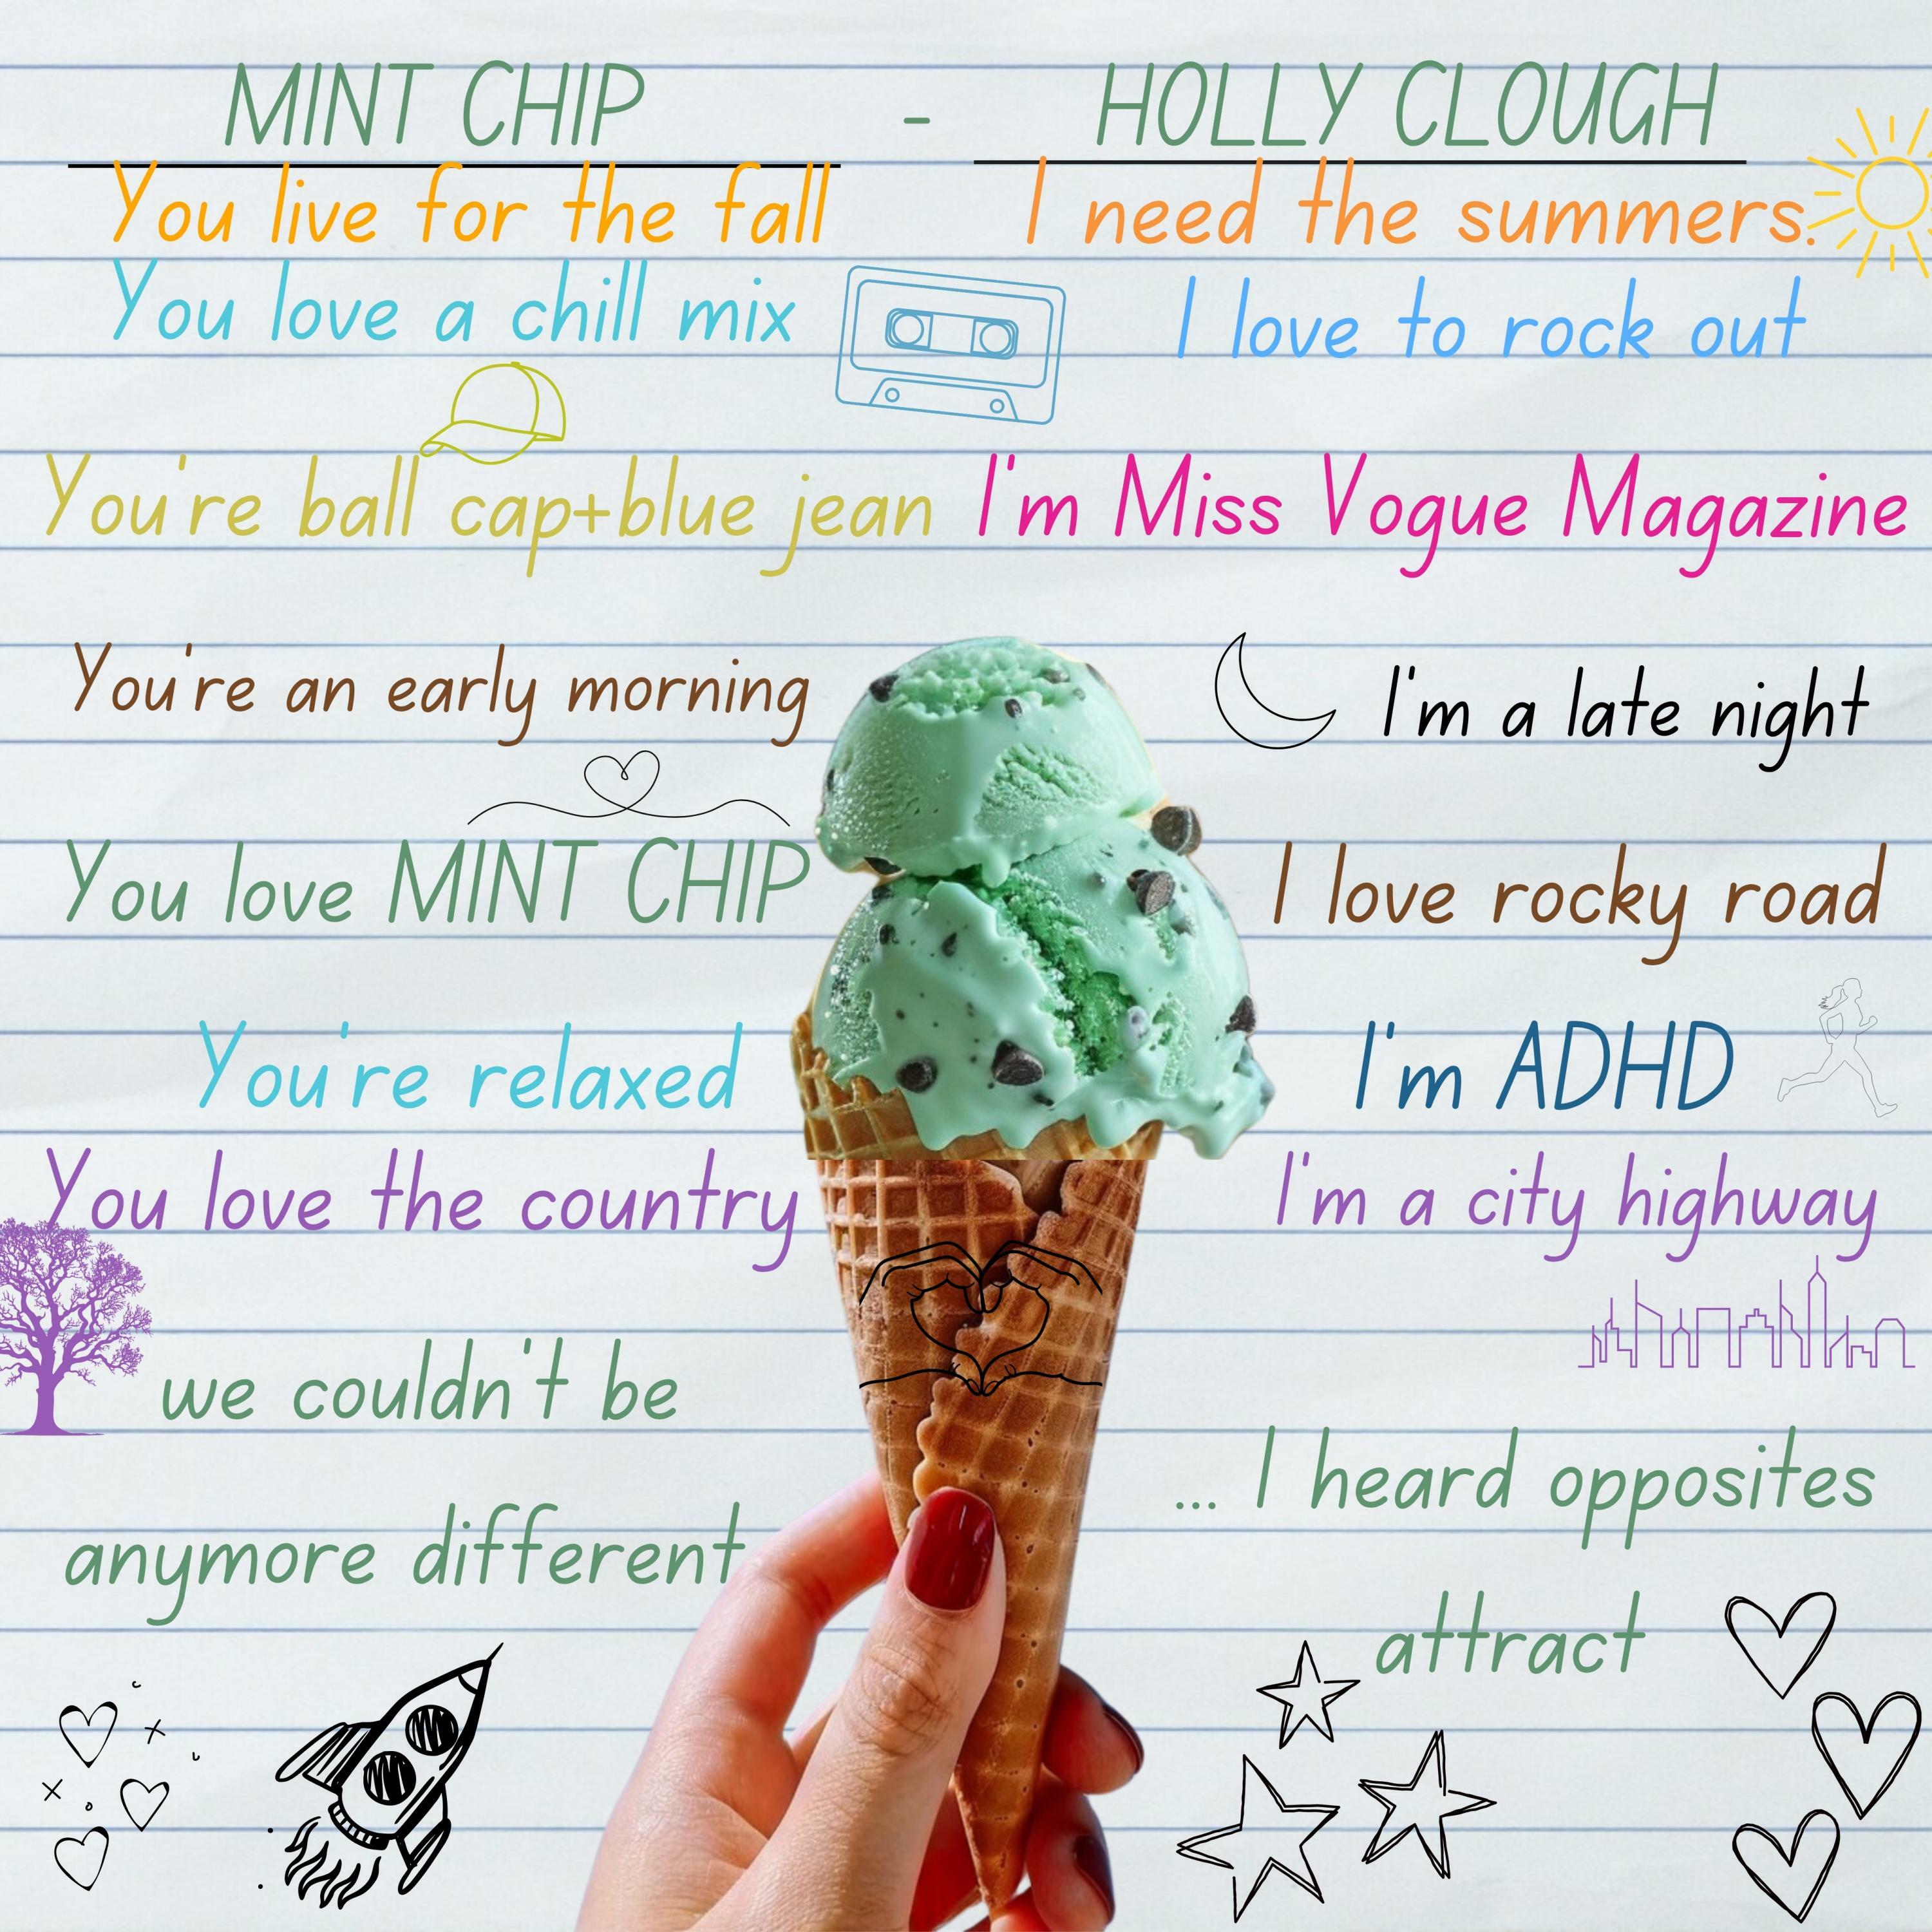 MINT CHIP - HOLLY CLOUGH
You live for the fall
I need the summers.
You love a chill mix
I love to rock out
You're ball cap+blue jean
I'm Miss Vogue Magazine
You're an early morning
I'm a late night
You love MINT CHIP
I love rocky road
You're relaxed
I'm ADHD
You love the country
I'm a city highway
we couldn't be
anymore different
... I heard opposites
attract